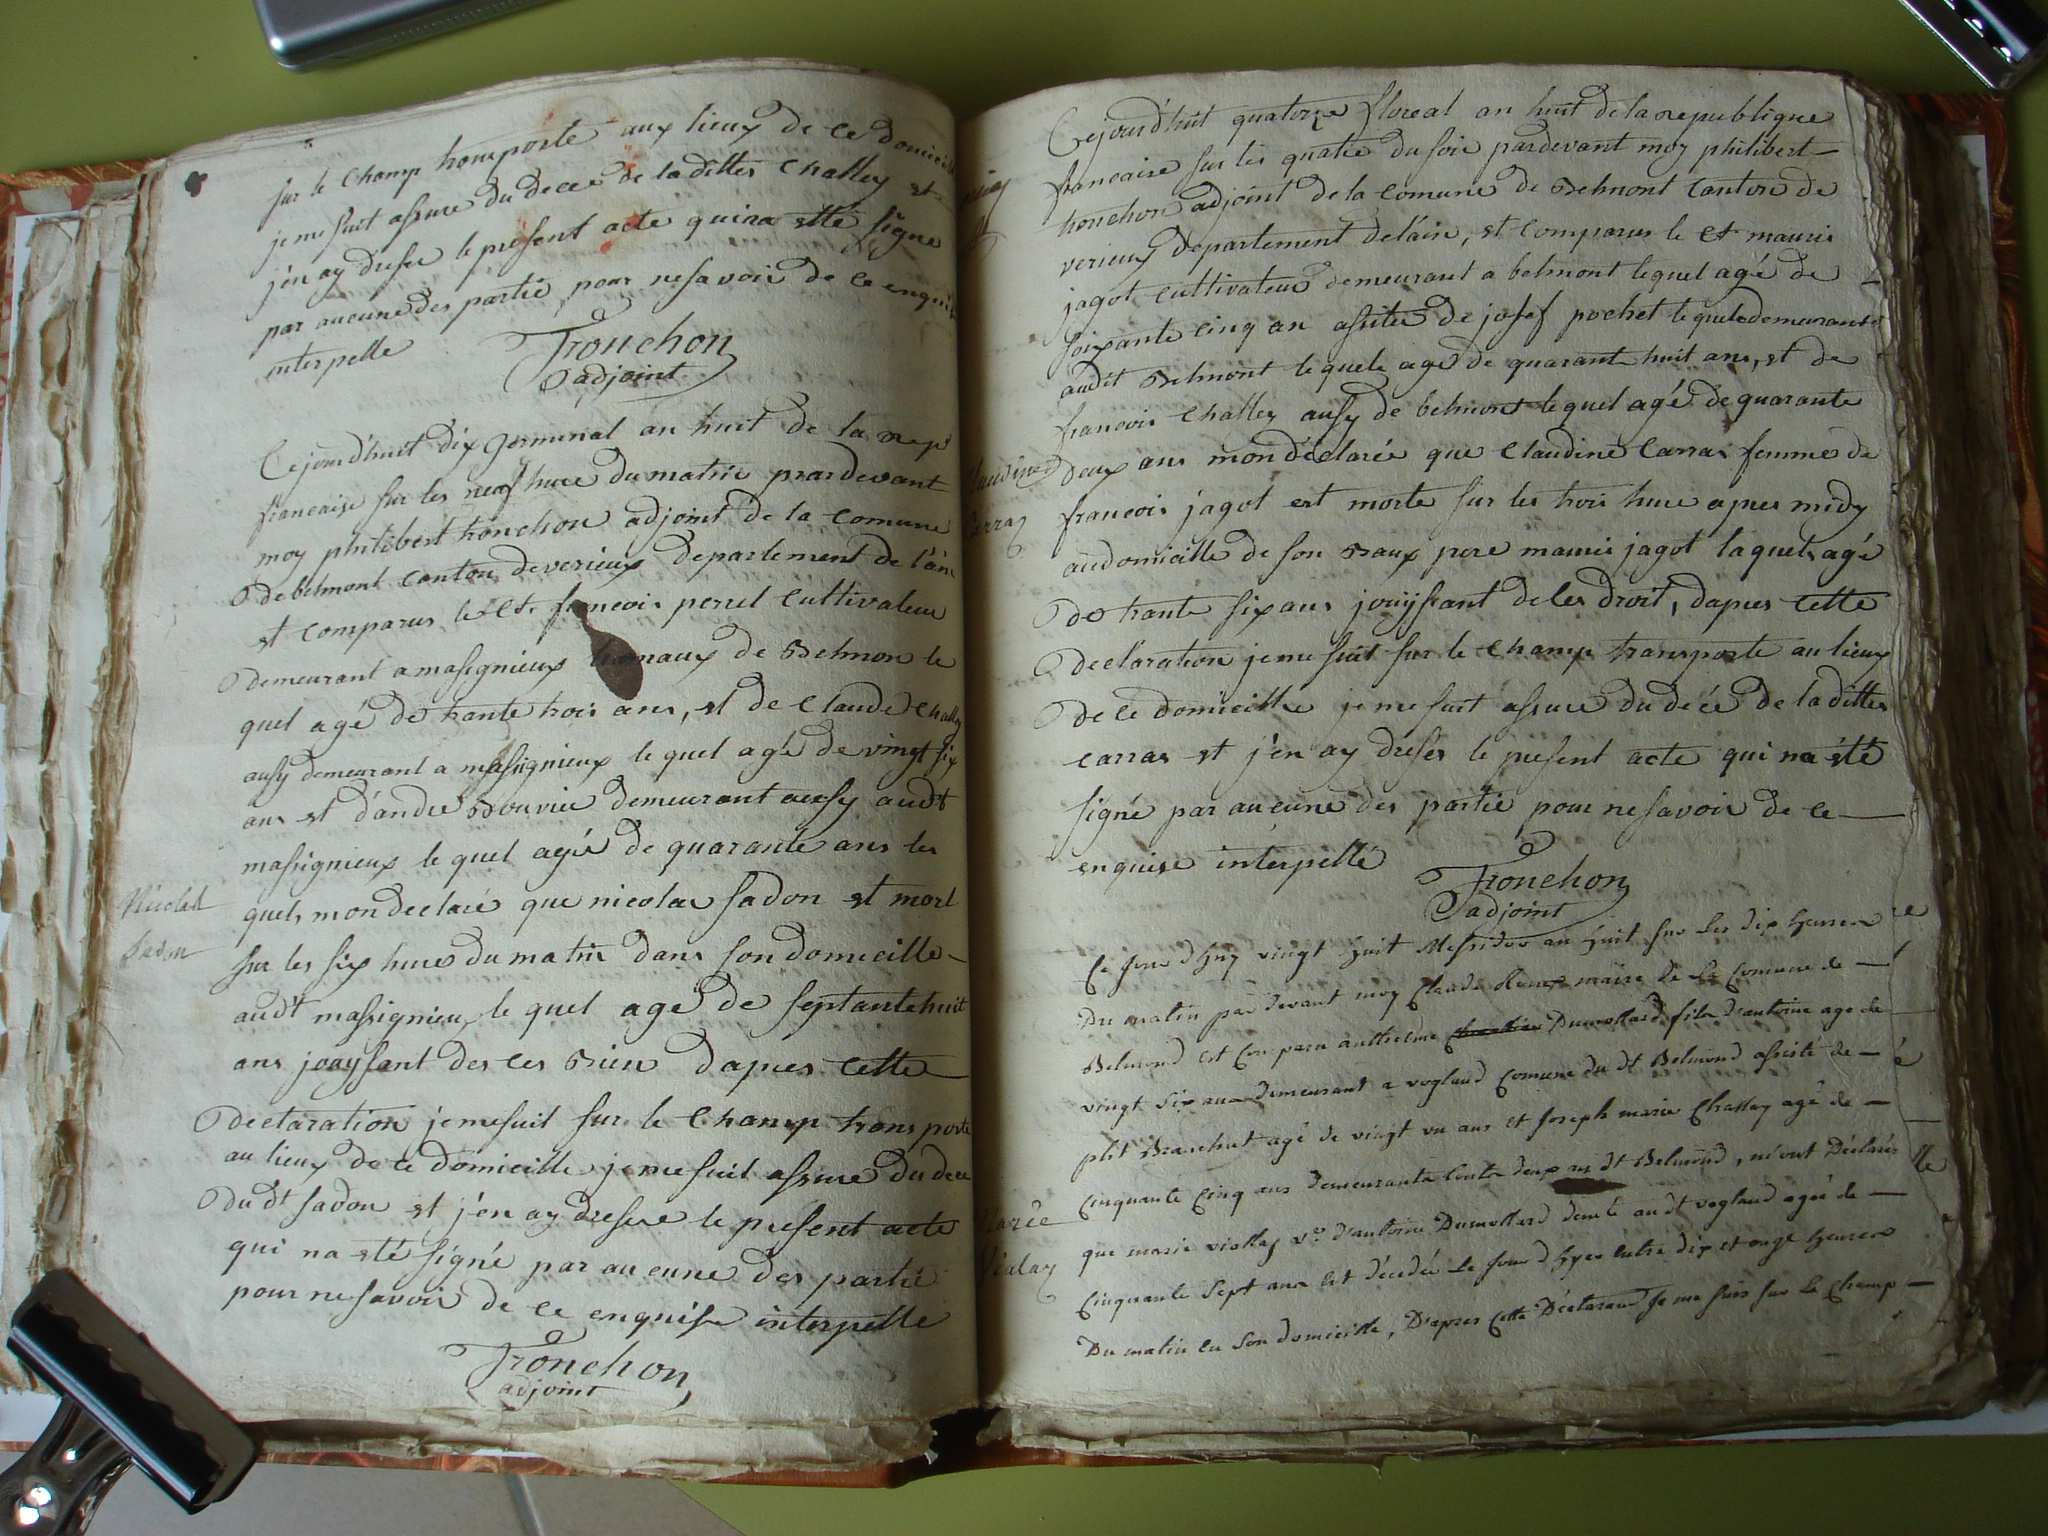 sur le champ tromporte aux lieux de ce domicille
je me suit assure du dece de la dittes Challey et
j'en ay dresse le present acte qui na etté signe
par aucune des partie pour ne savoir de ce enquis
interpelle
Tronchon
adjoint
Cejourd'huit dix germinal an huit de la rep
francaise sur les neuf hure du matrin prardevant
moy philibert tronchon adjoint de la comune
de belmont canton de verieux departement de l'ain
et comparus le Ct. francois perret cultivateur
demeurant a masignieux hamaux de Belmon le
quel agé de trante trois ans, et de Claude Challey
ausy demeurant a massignieux le quel agée de vingt six
ans et d'andre Bouvier demeurant aussy audt
massignieux le quel agée de quarante ans les
Nicolas
Sadon
quels mon declaré que nicolas sadon et mort
sur les six hure du matin dans son domicille
audt massignieu, le quel age de septante huit
ans jouyssant des ces Bien dapres cette
declaration je me suit sur le champ transporte
au lieux de ce domicille je me suit assure du dece
du dt sadon et j'en ay dressere le present acte
qui na eté signé par aucune des partie
pour ne savoir de ce enquise interpelle
Tronchon
adjoint
Cejourd'huit quatorze floreal an huit de la republique
francaise sur les quatre du soir pardevant moy philibert
tronchon adjoint de la comune de Belmont canton de
verieux departement de lain, et comparus le Ct mauris
jagot cultivateur demeurant a belmont lequel agé de
soixante cinq an assiter de josef pochet lequel demeurant
audit Belmont lequele age de quarante huit ans, et de
francois Challey ausy de belmont lequel agé de quarante
Claudine
Carraz
deux ans mon déclarée que Claudine Carras femme de
francois jagot est morte sur les trois hure apres midy
audomicille de son Baux pere mauris jagot laquels agé
de trante six ans jouyssant de les droit, dapres cette
declaration je me suit sur le champ transporte au lieux
de ce domicille je me suit assure du décé de la dittes
carras et j'en ay dresés le present acte qui na été
signé par aucune des partie pour ne savoir de ce
enquise interpellé
Tronchon
adjoint
Ce jourd'huy vingt huit Messidor an huit sur les dix heures
du matin par devant moy Claude maire de la Comune de
Belmond est Comparu anthelme Dumollard fils d'antoine age de
vingt six ans demeurant a vogland Comune du dt Belmond assisté de
plit Branchut agé de vingt un ans et Joseph marie Challey agé de
Cinquante Cinq ans demeurants touts deux au dt Belmond, m'ont Déclarés
Marie
Vialay
que marie viallay ve. d'antoine Dumollard demte audt vogland agée de
Cinquante Sept ans est décédée le jour d'hyer entre dix et onze heures
Du matin en son domicille, D'apres Cette Déclaraon Je me suis sur le Champ